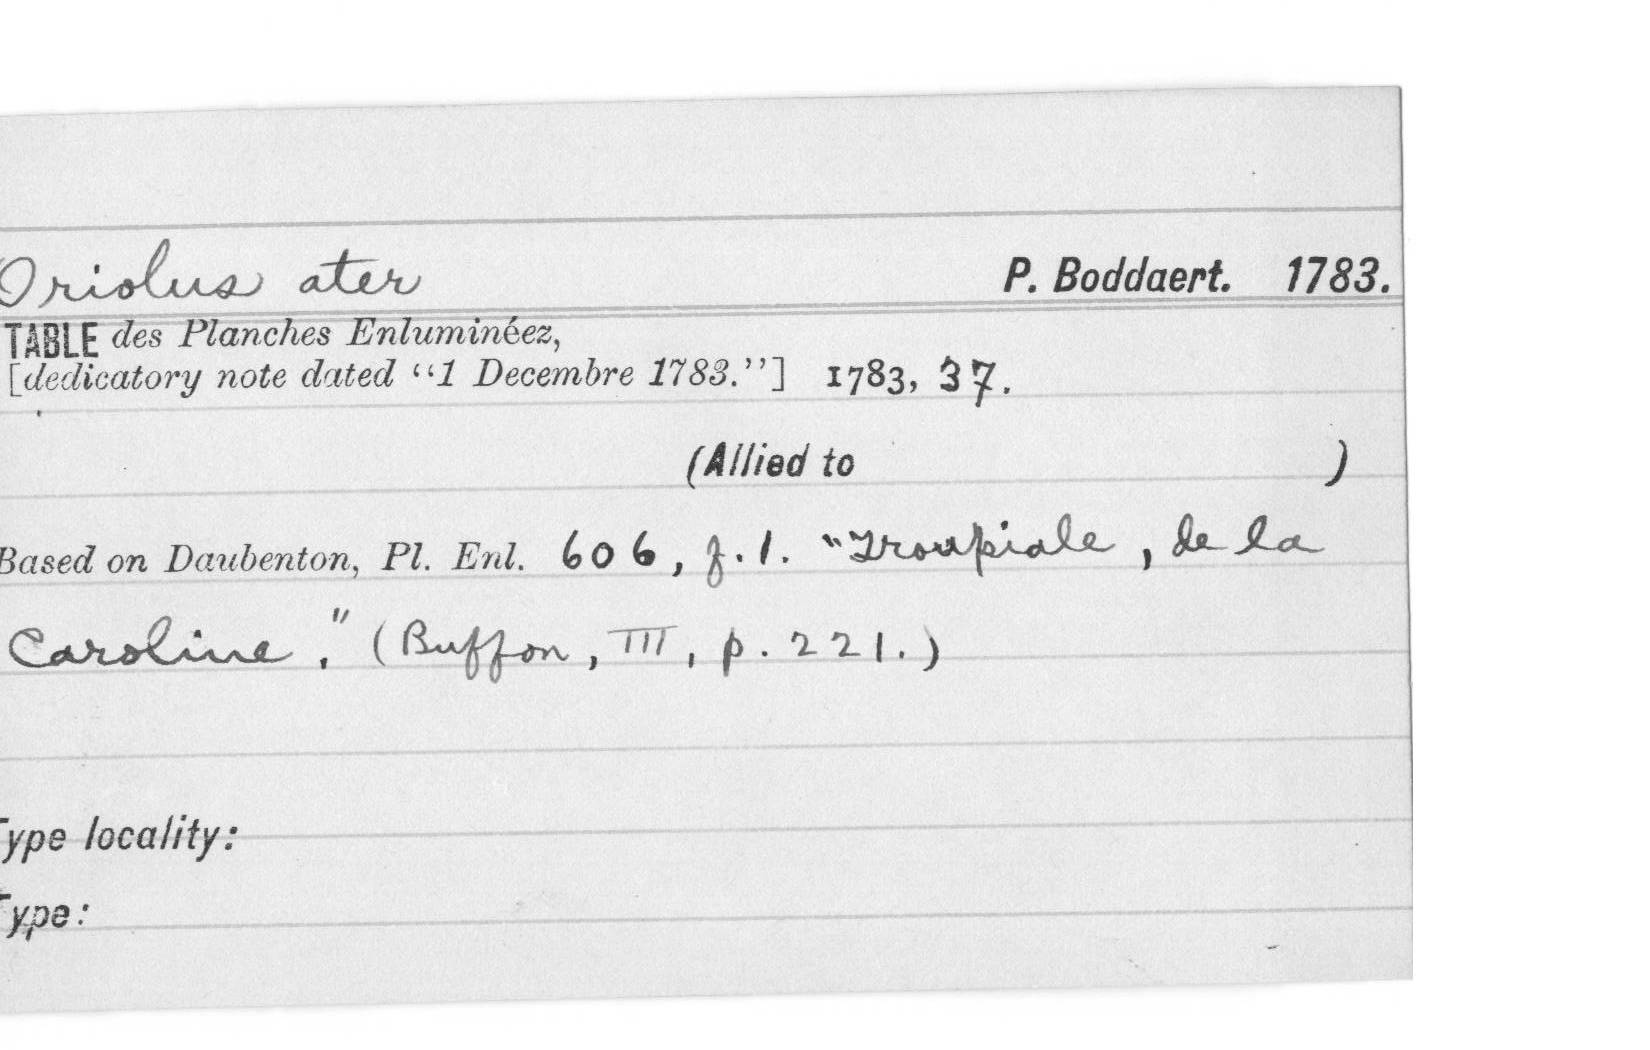 Oriolus ater P. Boddaert. 1783.
TABLE des Planches Enluminéez,
[dedicatory note dated “1 Decembre 1783.”] 1783, 37.
(Allied to )
Based on Daubenton, Pl. Enl. 606, f.1. "Troupiale, de la
Caroline." (Buffon, III, p. 221.)
Type locality:
Type: